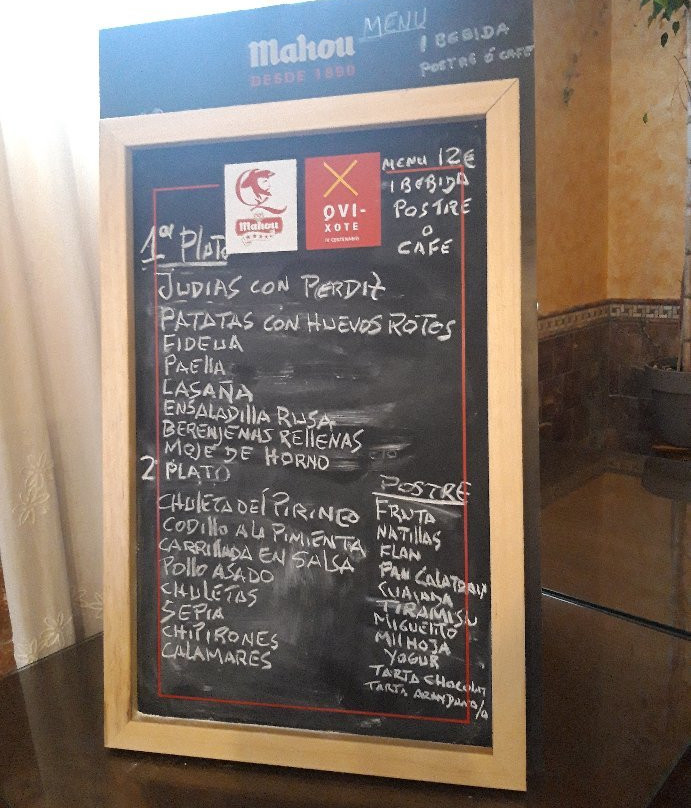 Mahou
DESDE 1890
MENU
1 BEBIDA
POSTRE Ó CAFE
Mahou
QVI-
XOTE
IV CENTENARIO
MENU 12€
1 BEBIDA
POSTRE
O
CAFE
1er Plato
JUDIAS CON PERDIZ
PATATAS CON HUEVOS ROTOS
FIDEUA
PAEllA
LASAÑA
ENSALADIllA RUSA
BERENJENAS RELLENAS
MOJE DE HORNO
2 PLATO
CHULETA DEL PIRINEO
CODIllO A LA PIMIENTA
CARRILLADA EN SALSA
POllO ASADO
CHULETAS
SEPIA
CHIPIRONES
CALAMARES
POSTRE
FRUTA
NATIllAS
FLAN
PAN CALATRAVA
CUAJADA
TIRAMISU
MIGUELITO
MILHOJA
YOGUR
TARTA CHOCOLAT
TARTA